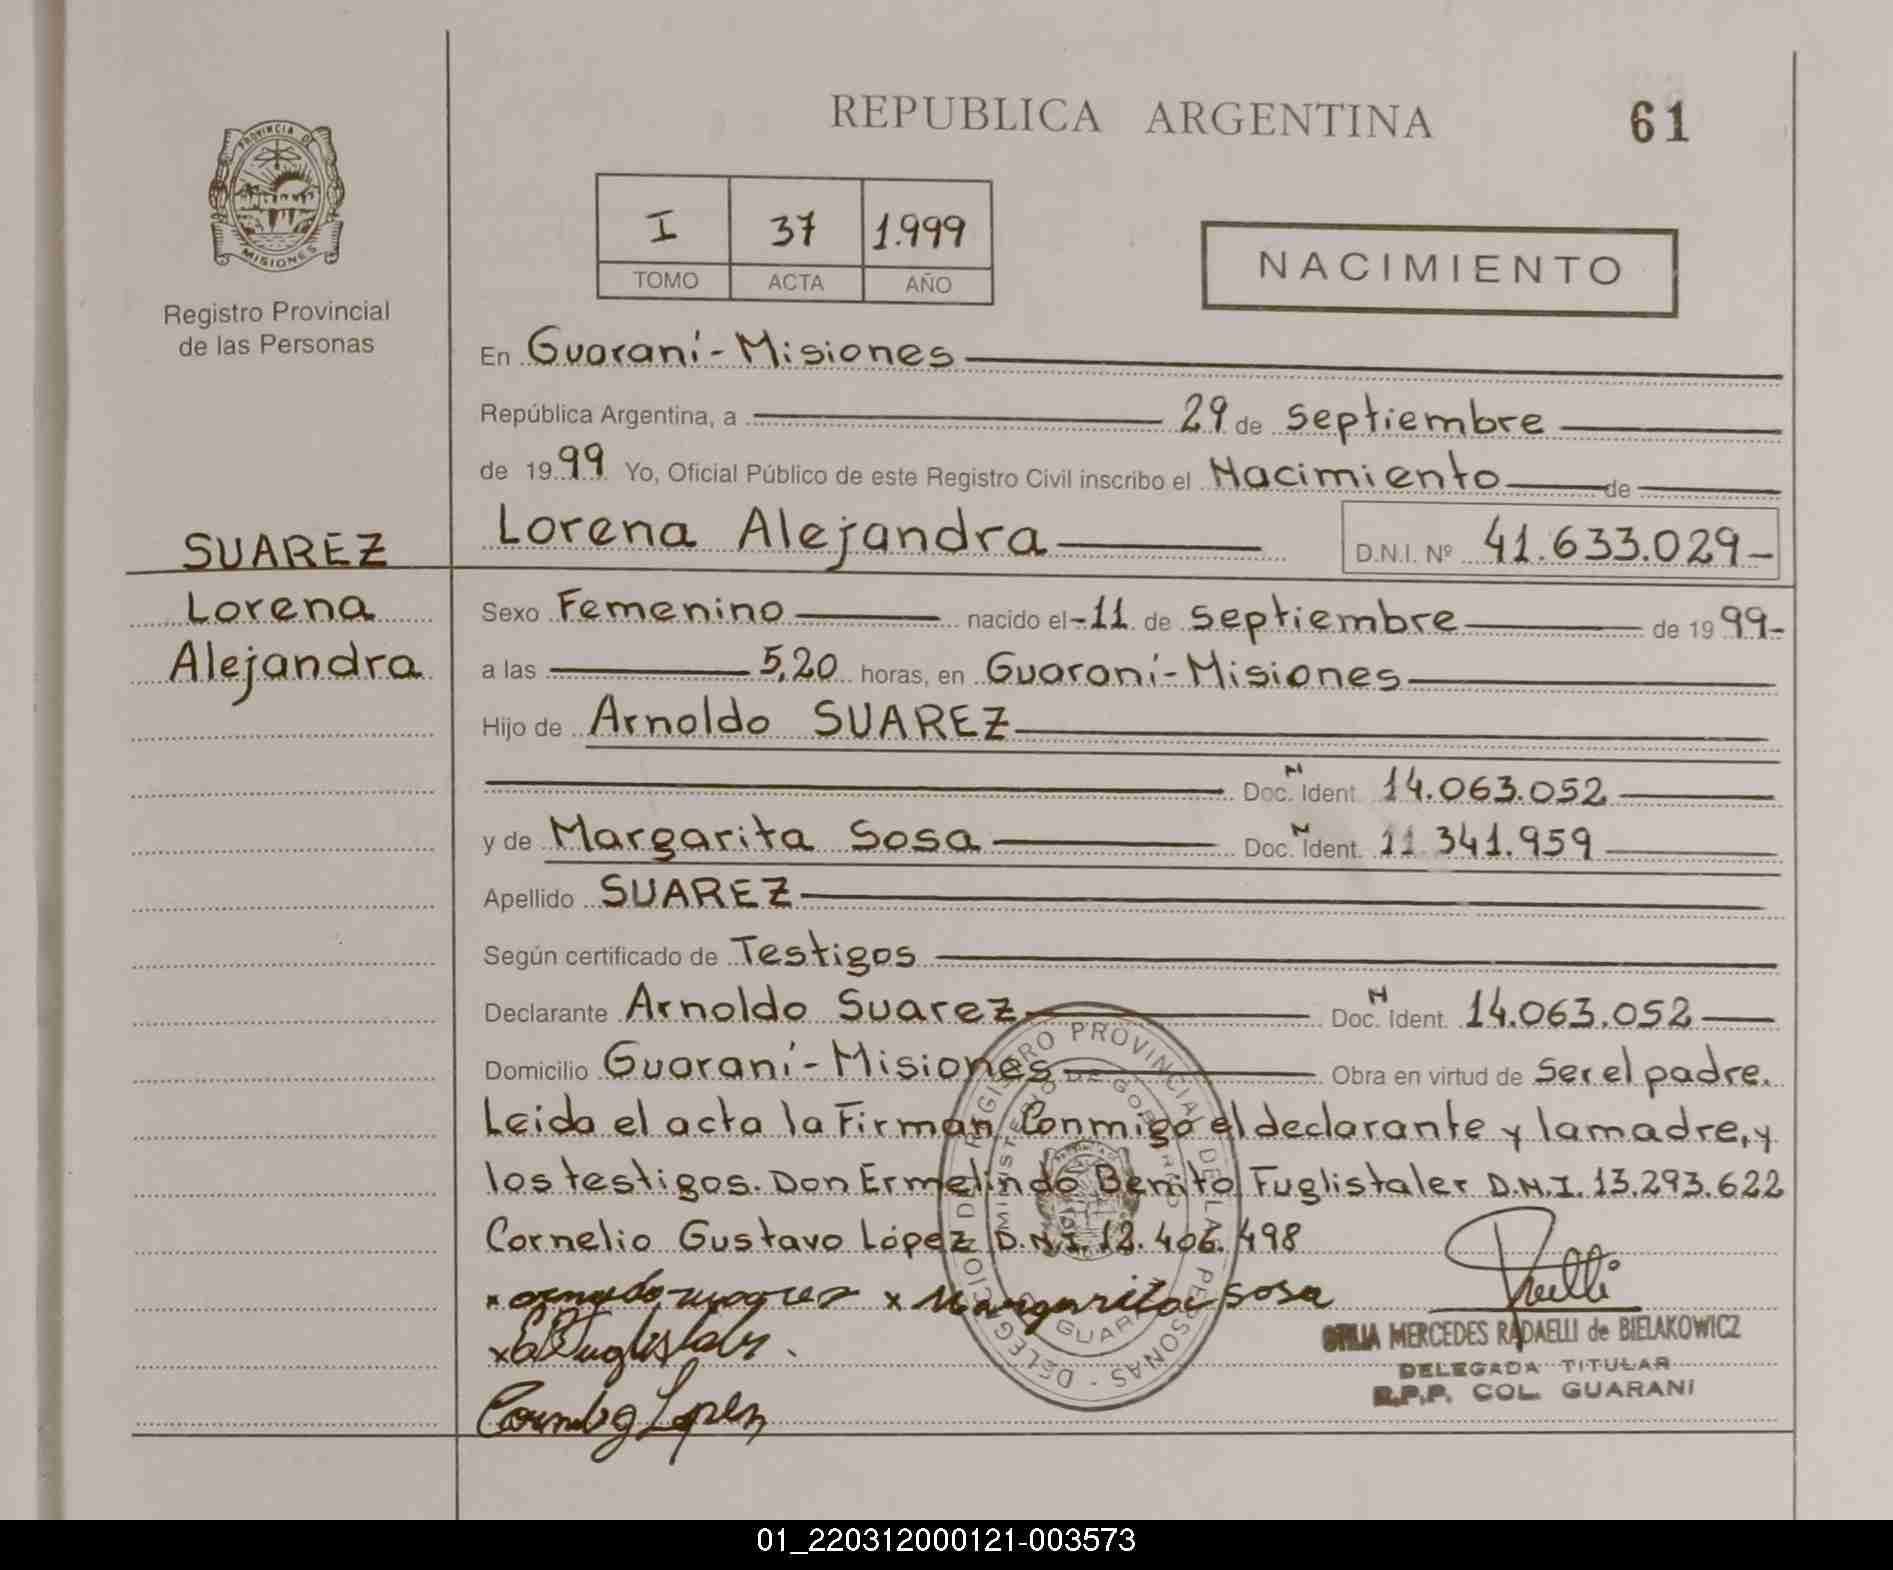 REPUBLICA ARGENTINA
61
PROVINCIA DE
MISIONES
Registro Provincial
de las Personas
I 37 1.999
TOMO ACTA AÑO
NACIMIENTO
En Guaraní-Misiones
República Argentina, a 29 de septiembre
de 1999 Yo, Oficial Público de este Registro Civil inscribo el Nacimiento de
Lorena Alejandra D.N.I. Nº 41.633.029-
SUAREZ
Lorena
Alejandra
Sexo Femenino nacido el -11 de septiembre de 1999-
a las 5,20 horas, en Guaraní-Misiones
Hijo de Arnoldo SUAREZ
Doc. N Ident. 14.063.052
y de Margarita Sosa Doc. N Ident. 11 341.959
Apellido SUAREZ
Según certificado de Testigos
Declarante Arnoldo Suarez Doc. N Ident. 14.063.052
Domicilio Guaraní-Misiones Obra en virtud de Ser el padre.
Leida el acta la Firman Conmigo el declarante y la madre, y
los testigos. Don Ermelindo Benito Fuglistaler D.N.I. 13.293.622
Cornelio Gustavo López D.N.I 12.406.498
x x Margarita Sosa
MERCEDES RADAELLI de BIELAKOWICZ
DELEGADA TITULAR
R.P.P. COL. GUARANI
DELEGACION DE REGISTRO PROVINCIAL DE LAS PERSONAS -
MINISTERIO DE GOBIERNO
GUARANI
01_220312000121-003573